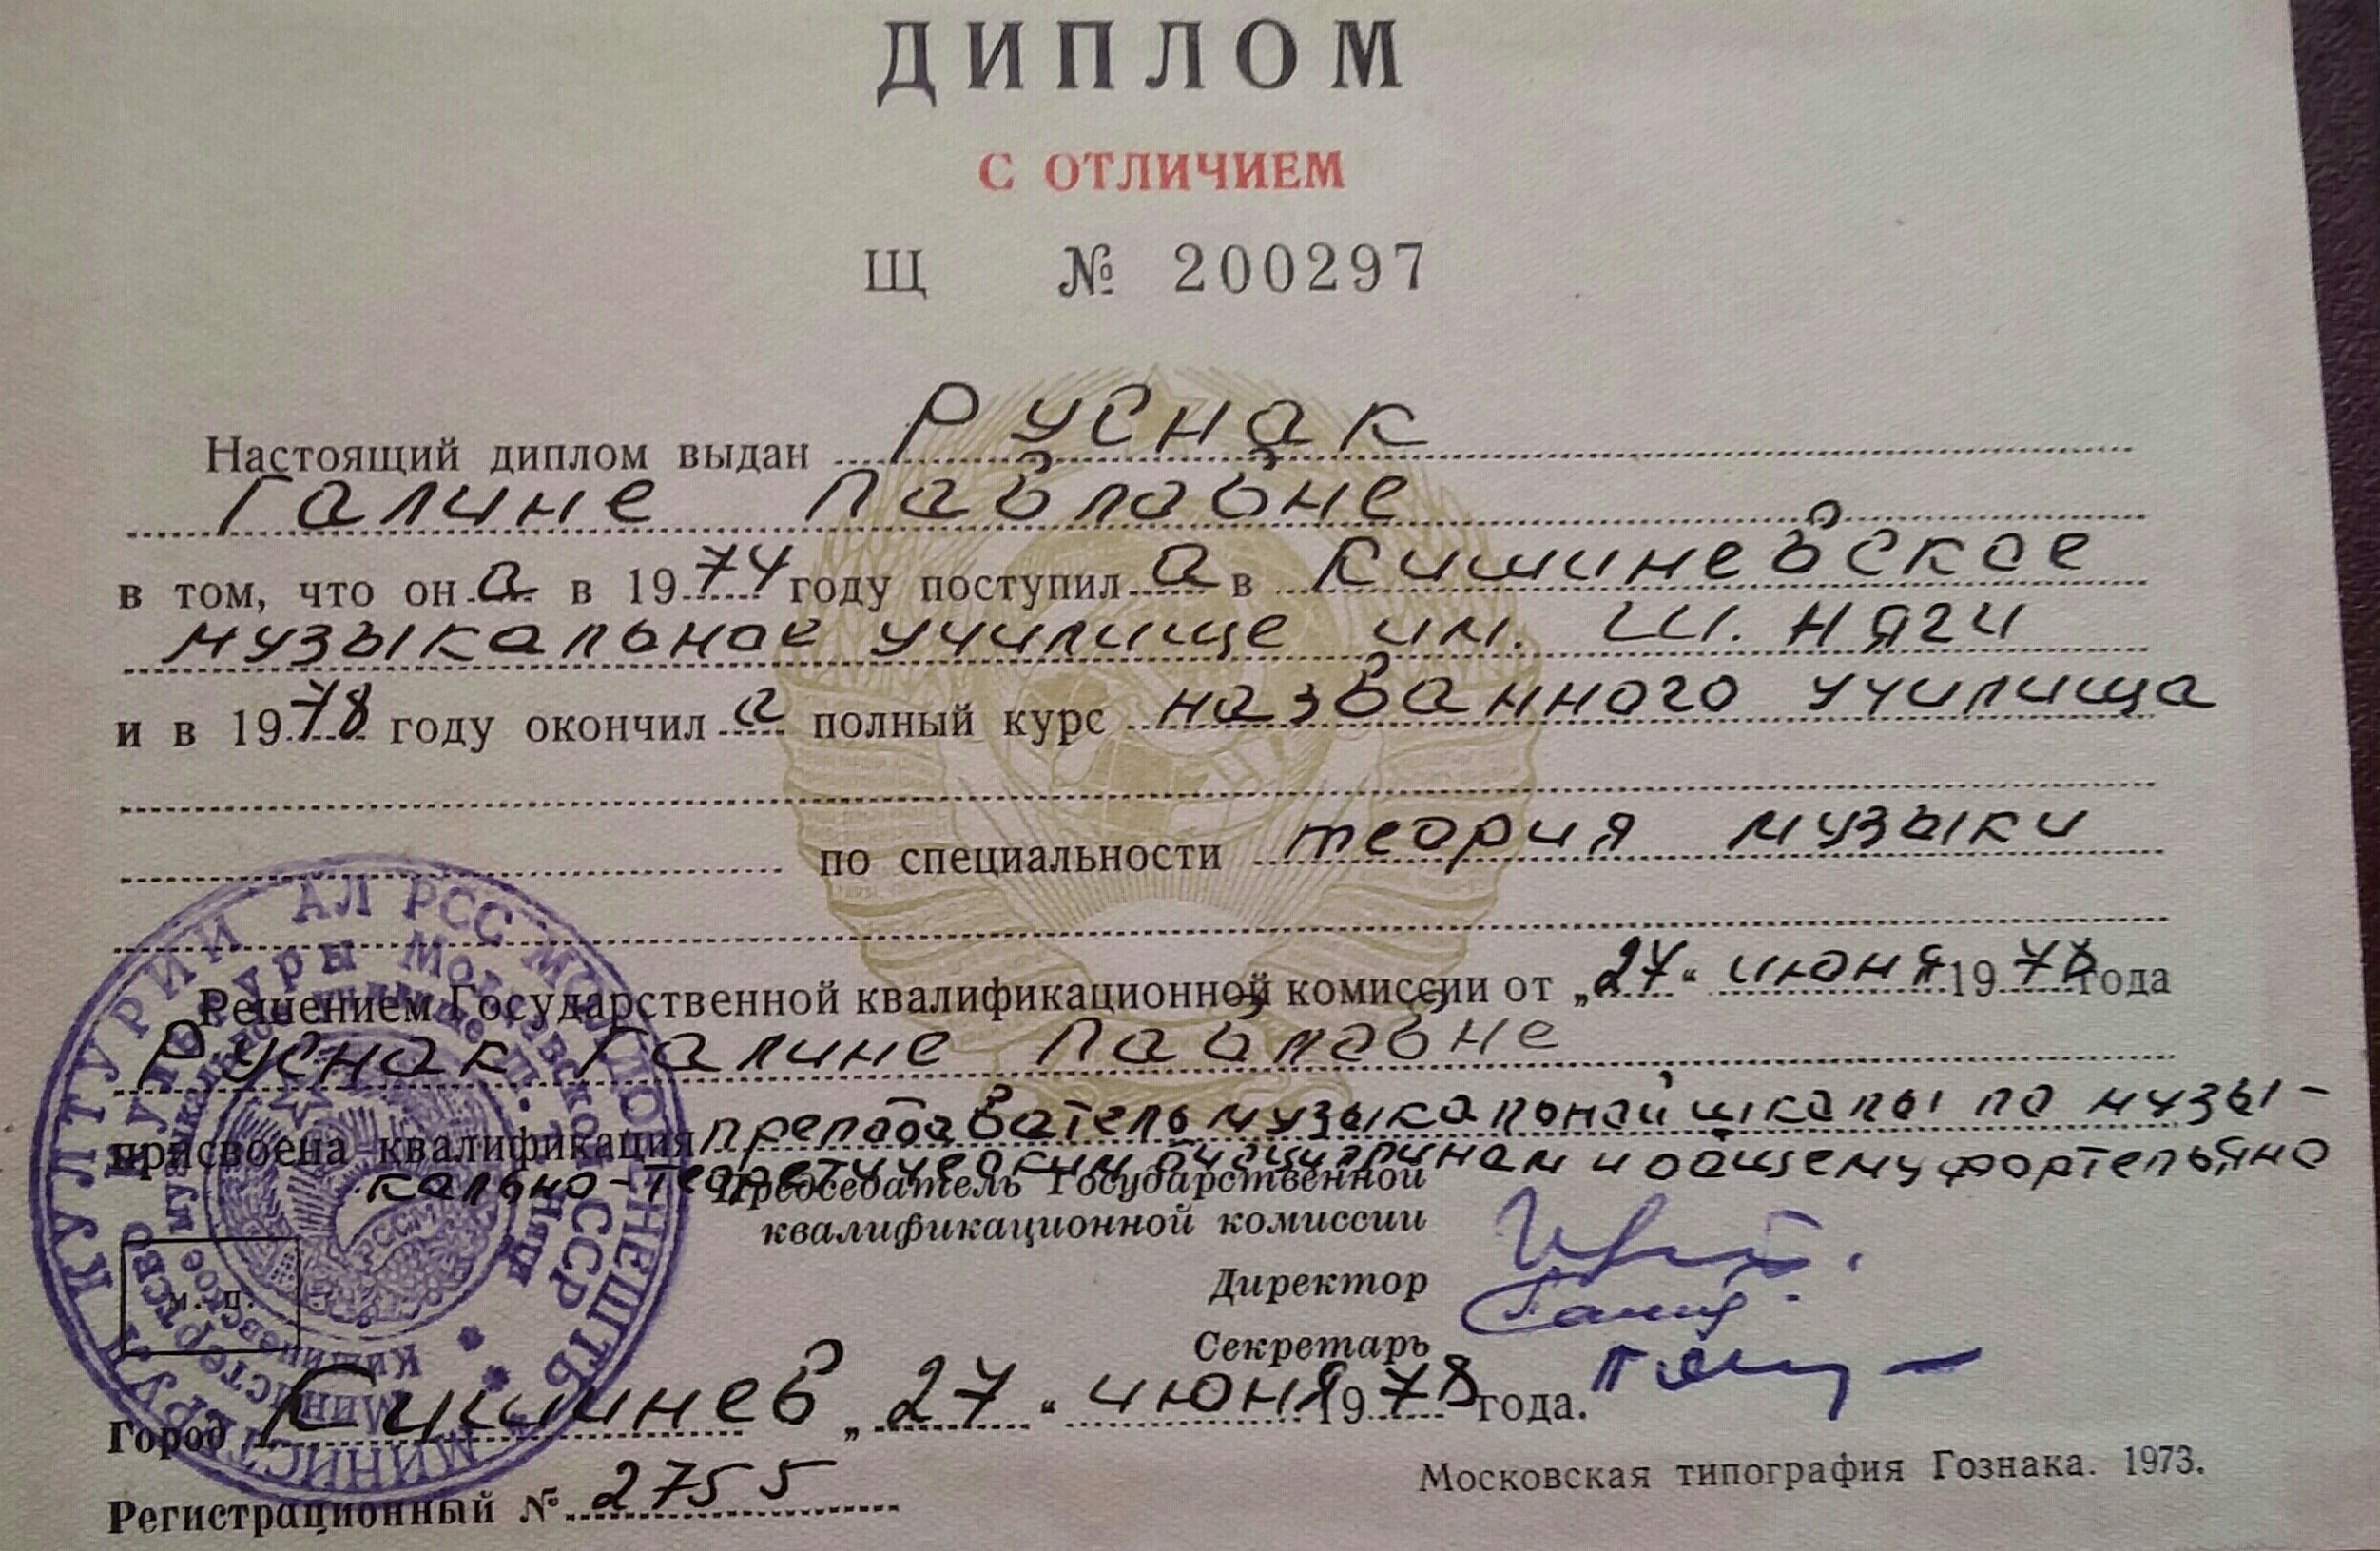 ДИПЛОМ
С ОТЛИЧИЕМ
Щ № 200297
Настоящий диплом выдан Руснак
Галине Павловне
в том, что он а в 1974 году поступил а в Кишиневское
музыкальное училище им. Ш. Няги
и в 1978 году окончил а полный курс названного училища
по специальности теория музыки
Решением Государственной квалификационной комиссии от „27“ июня 1978 года
Руснак Галине Павловне
присвоена квалификация преподаватель музыкальной школы по музы-
кально-теоретическим дисциплинам и общему фортепьяно
Председатель Государственной
квалификационной комиссии
Директор
Секретарь
м. п.
Город Кишинев „27“ июня 1978 года.
Регистрационный № 2755
Московская типография Гознака. 1973.
МИНИСТЕРУЛ КУЛТУРИЙ АЛ РСС МОЛДОВЕНЕШТЬ
Министерство культуры Молдавской ССР
Кишиневское музыкальное училище
РССМ